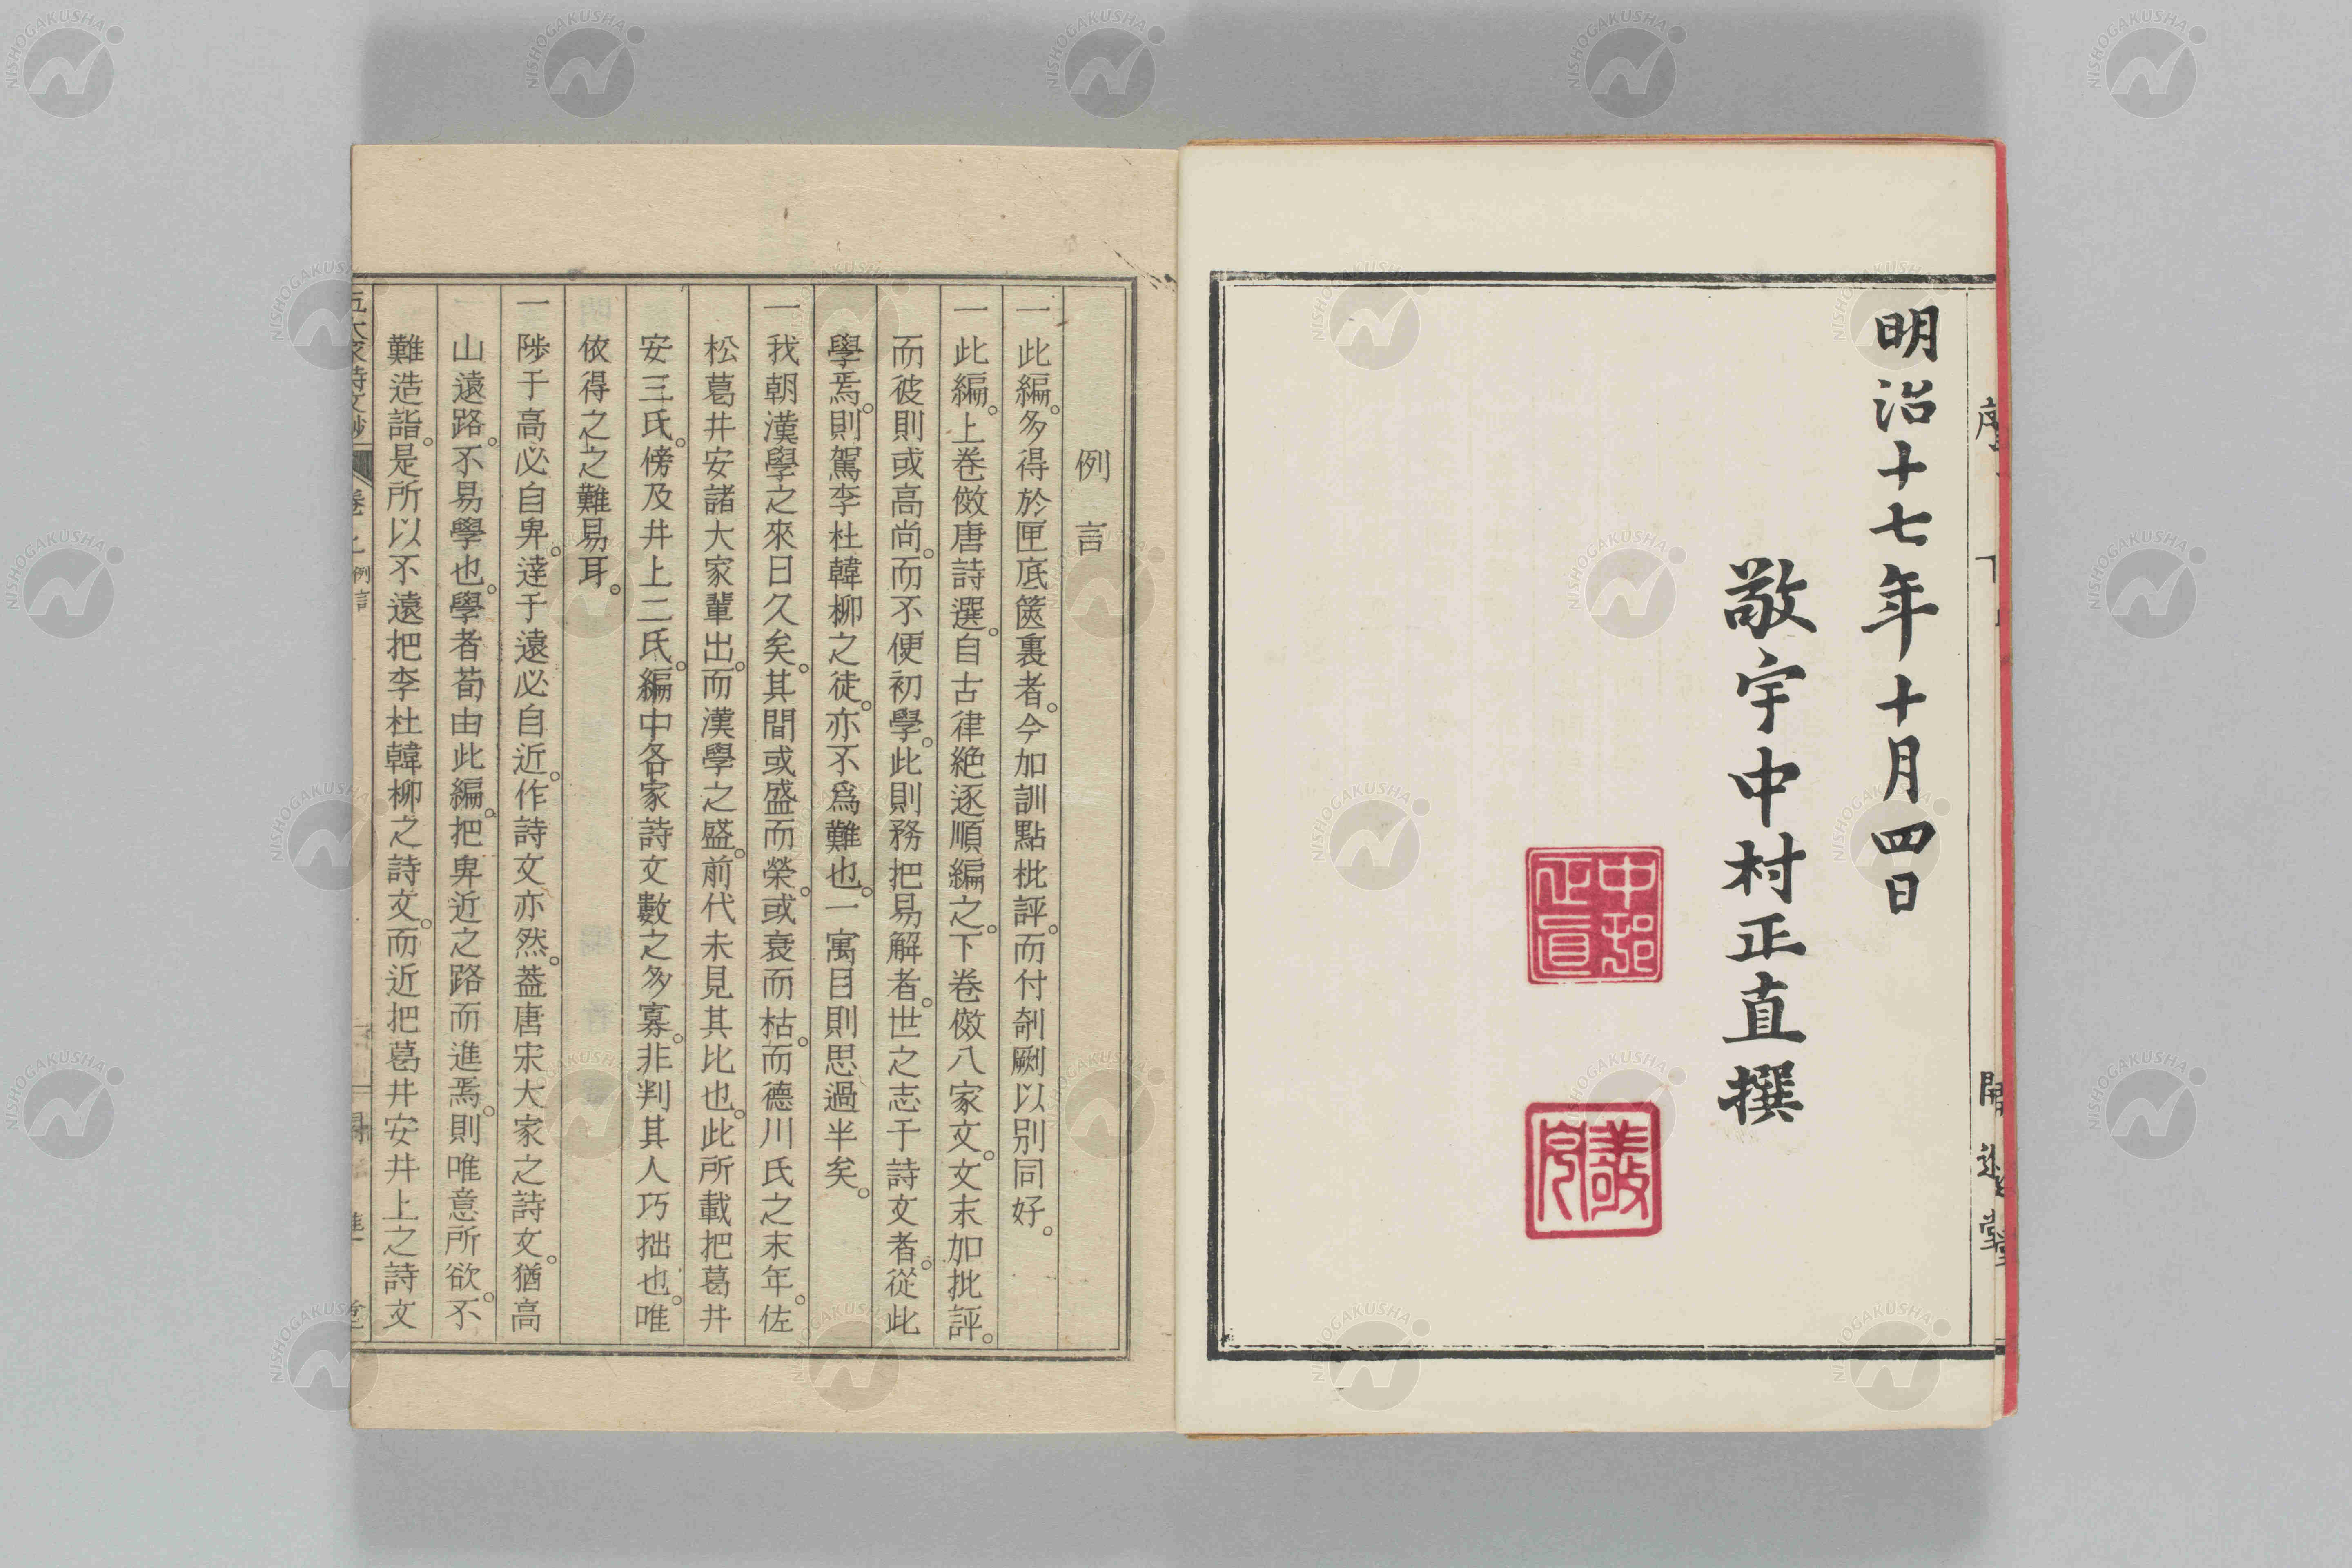 明治十七年十月四日
敬宇中村正直撰
中邨正直
例言
一此編。多得於匣底篋裏者。今加訓點批評。而付剞劂以別同好。
一此編。上卷倣唐詩選。自古律絶逐順編之。下卷倣八家文。文末加批評。
而彼則或高尚。而不便初學。此則務把易解者。世之志于詩文者。從此
學焉。則駕李杜韓柳之徒。亦不爲難也。一寓目則思過半矣。
一我朝漢學之來曰久矣。其間或盛而榮。或衰而枯。而德川氏之末年。佐
松葛井安諸大家輩出。而漢學之盛。前代未見其比也。此所載把葛井
安三氏。傍及井上二氏。編中各家詩文數之多寡。非判其人巧拙也。唯
依得之之難易耳。
一陟于高必自卑。達于遠必自近。作詩文亦然。葢唐宋大家之詩文。猶高
山遠路。不易學也。學者荀由此編。把卑近之路而進焉。則唯意所欲。不
難造詣。是所以不遠把李杜韓柳之詩文。而近把葛井安井上之詩文
NISHOGAKUSHA